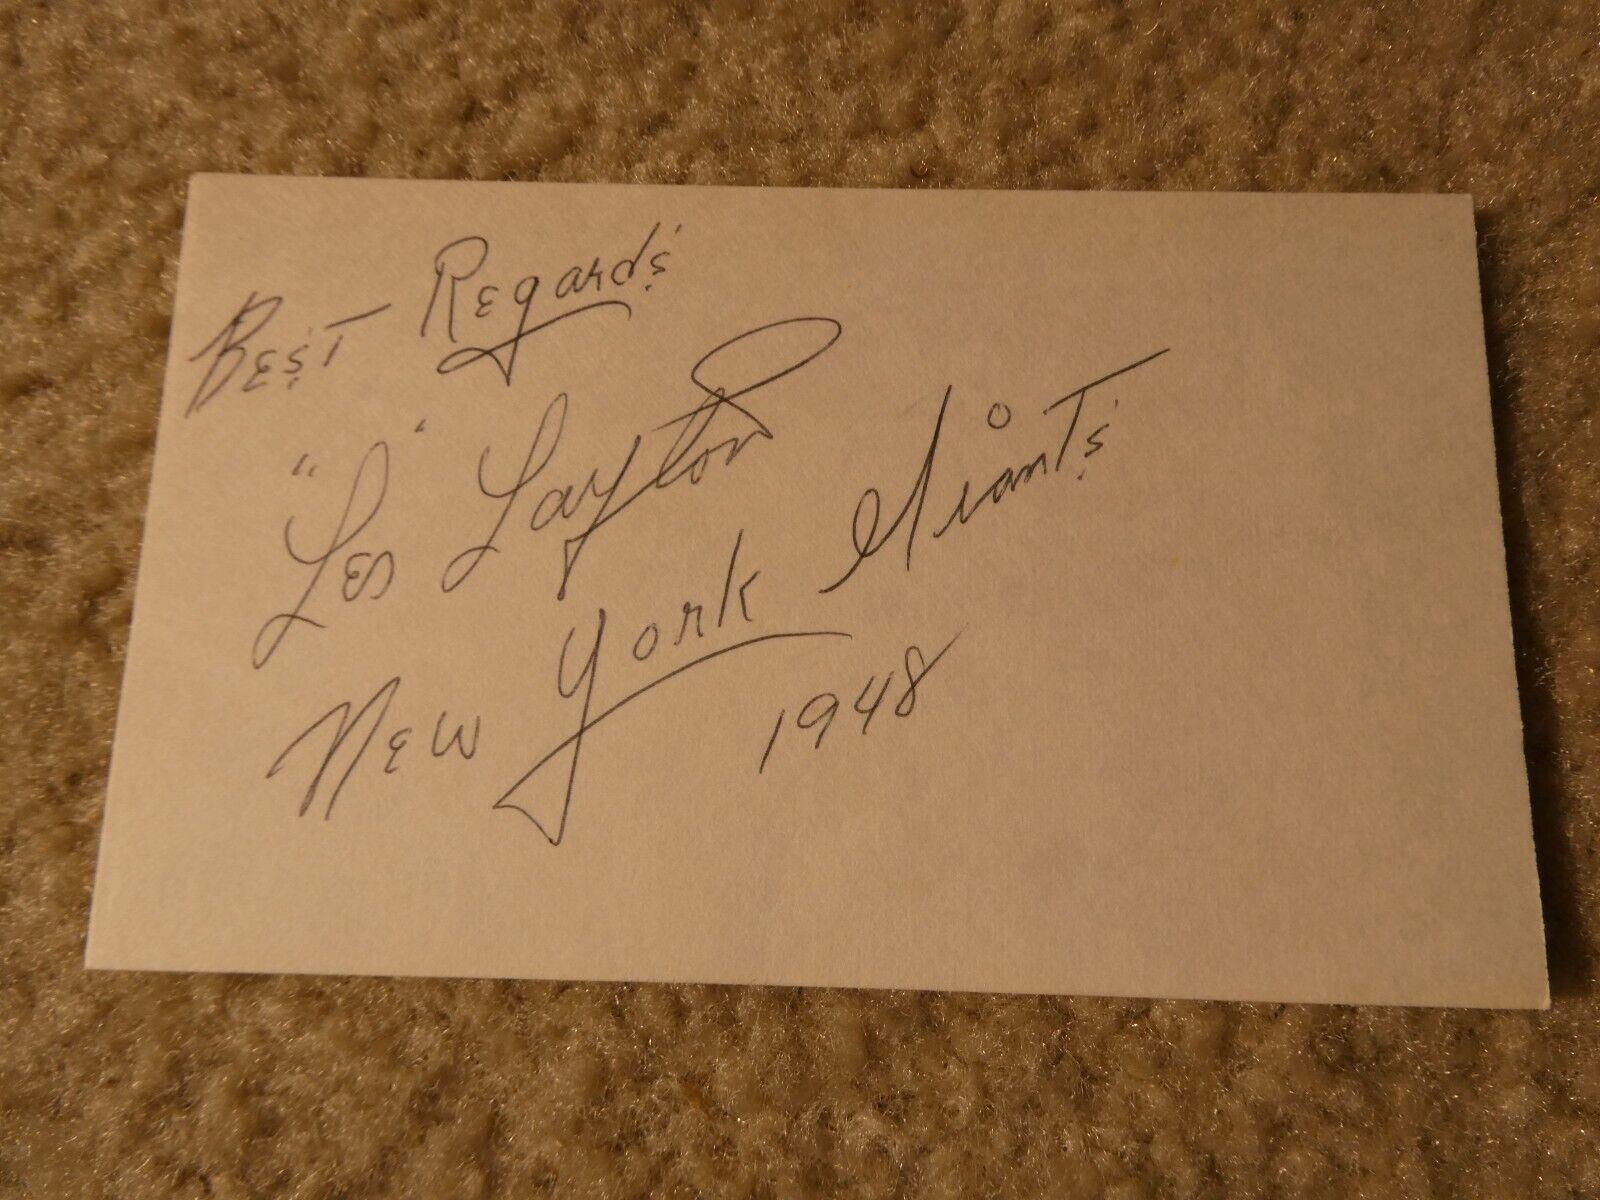 Best Regards
"Les" Layton
New York Giants
1948